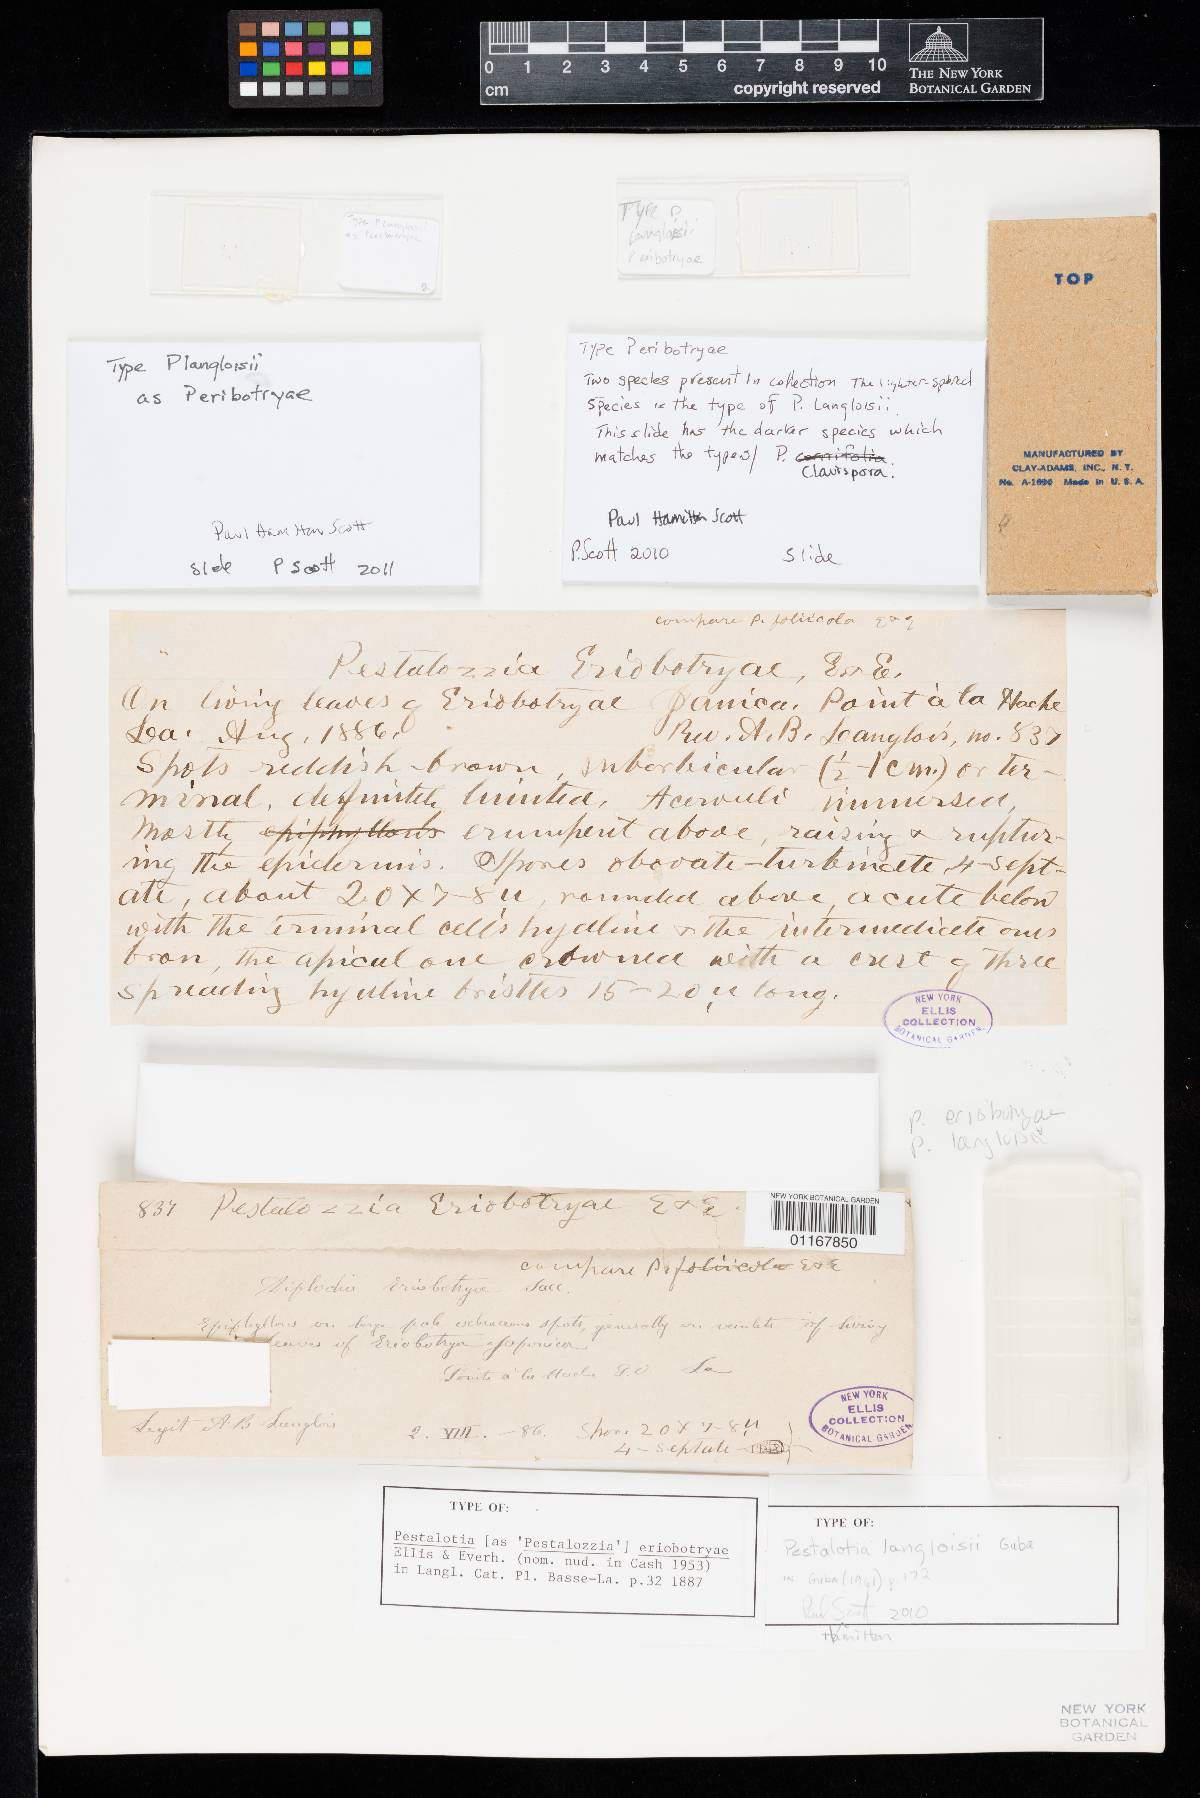 0 1 2 3 4 5 6 7 8 9 10
cm
copyright reserved
THE NEW YORK
BOTANICAL GARDEN
Type P langloisii
2
Type P.
langloisii
Peribotryae
TOP
MANUFACTURED BY
CLAY-ADAMS, INC., N. Y.
No. A-1690 Made in U. S. A.
Type P langloisii
as Peribotryae
Paul Hamilton Scott
slide P Scott 2011
Type Peribotryae
Two species present in collection The lighter-spored
species is the type of P. Langloisii.
This slide has the darker species which
matches the types/ P. cornifolia
Clavispora.
Paul Hamilton Scott
P. Scott 2010 slide
compare P. foliicola E & E
Pestalozzia Eriobotryae, E & E.
On living leaves of Eriobotryae Japonica. Point à la Hache
La. Aug. 1886. Rev. A. B. Langlois, no. 837
Spots reddish-brown, suborbicular (½-1 cm.) or ter-
minal, definitely limited, Acervuli immersed,
mostly epiphyllous erumpent above, raising & ruptur-
ing the epidermis. Spores obovate-turbinate, 4-sept-
ate, about 20 x 7-8 u, rounded above, acute below
with the terminal cells hyaline & the intermediate ones
bron, the apical one crowned with a crest of three
spreading hyaline bristles 15-20 u long.
NEW YORK
ELLIS
COLLECTION
BOTANICAL GARDEN
P. eriobotryae
P. langloisii
837 Pestalozzia Eriobotryae E & E.
NEW YORK BOTANICAL GARDEN
01167850
compare P. foliicola E & E
Diplodia Eriobotryae Sacc.
Epiphyllous on large pale ochraceous spots, generally on veinlets of living
leaves of Eriobotrya Japonica
Pointe à la Hache P.O La
Legit A B Langlois 2. VIII. - 86. Spor. 20 x 7-8 u
4-septate
NEW YORK
ELLIS
COLLECTION
BOTANICAL GARDEN
TYPE OF:
Pestalotia [as 'Pestalozzia'] eriobotryae
Ellis & Everh. (nom. nud. in Cash 1953)
in Langl. Cat. Pl. Basse-La. p.32 1887
TYPE OF:
Pestalotia langloisii Guba
in Guba (1961) p. 172
Paul Scott 2010
Hamilton
NEW YORK
BOTANICAL
GARDEN